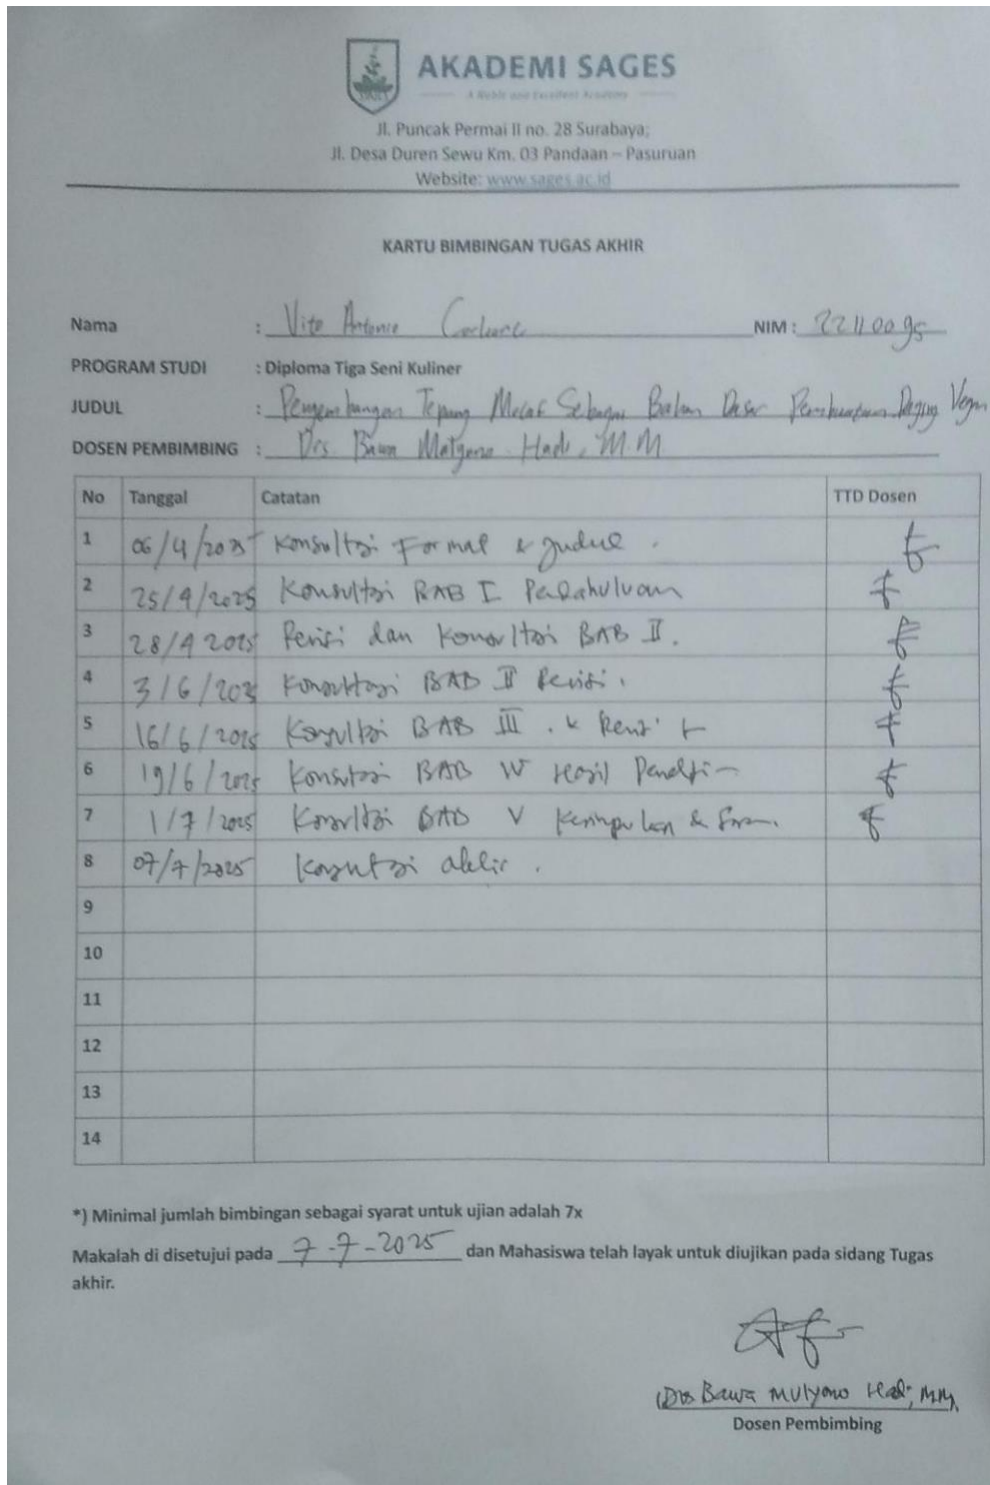 AKADEMI SAGES
A Noble and Excellent Academy
Jl. Puncak Permai II no. 28 Surabaya;
Jl. Desa Duren Sewu Km. 03 Pandaan – Pasuruan
Website: www.sages.ac.id
KARTU BIMBINGAN TUGAS AKHIR
Nama : Vito Antonio NIM : 22110095
PROGRAM STUDI : Diploma Tiga Seni Kuliner
JUDUL : Pengembangan Tepung Mocaf Sebagai Bahan Dasar Pembuatan Daging Vegan
DOSEN PEMBIMBING : Drs. Bawa Hadi, M.M
No Tanggal Catatan TTD Dosen
1 06/4/2025 Konsultasi Format & Judul.
2 25/4/2025 Konsultasi BAB I Pendahuluan
3 28/4 2025 Revisi dan Konsultasi BAB II.
4 3/6/2025 Konsultasi BAB II Revisi.
5 16/6/2025 Konsultasi BAB III
6 19/6/2025 Konsultasi BAB IV Hasil
7 1/7/2025 Konsultasi BAB V Kesimpulan & Saran.
8 07/7/2025 Konsultasi akhir.
9
10
11
12
13
14
*) Minimal jumlah bimbingan sebagai syarat untuk ujian adalah 7x
Makalah di disetujui pada 7-7-2025 dan Mahasiswa telah layak untuk diujikan pada sidang Tugas
akhir.
(Drs Bawa Mulyono Hadi, MM
Dosen Pembimbing